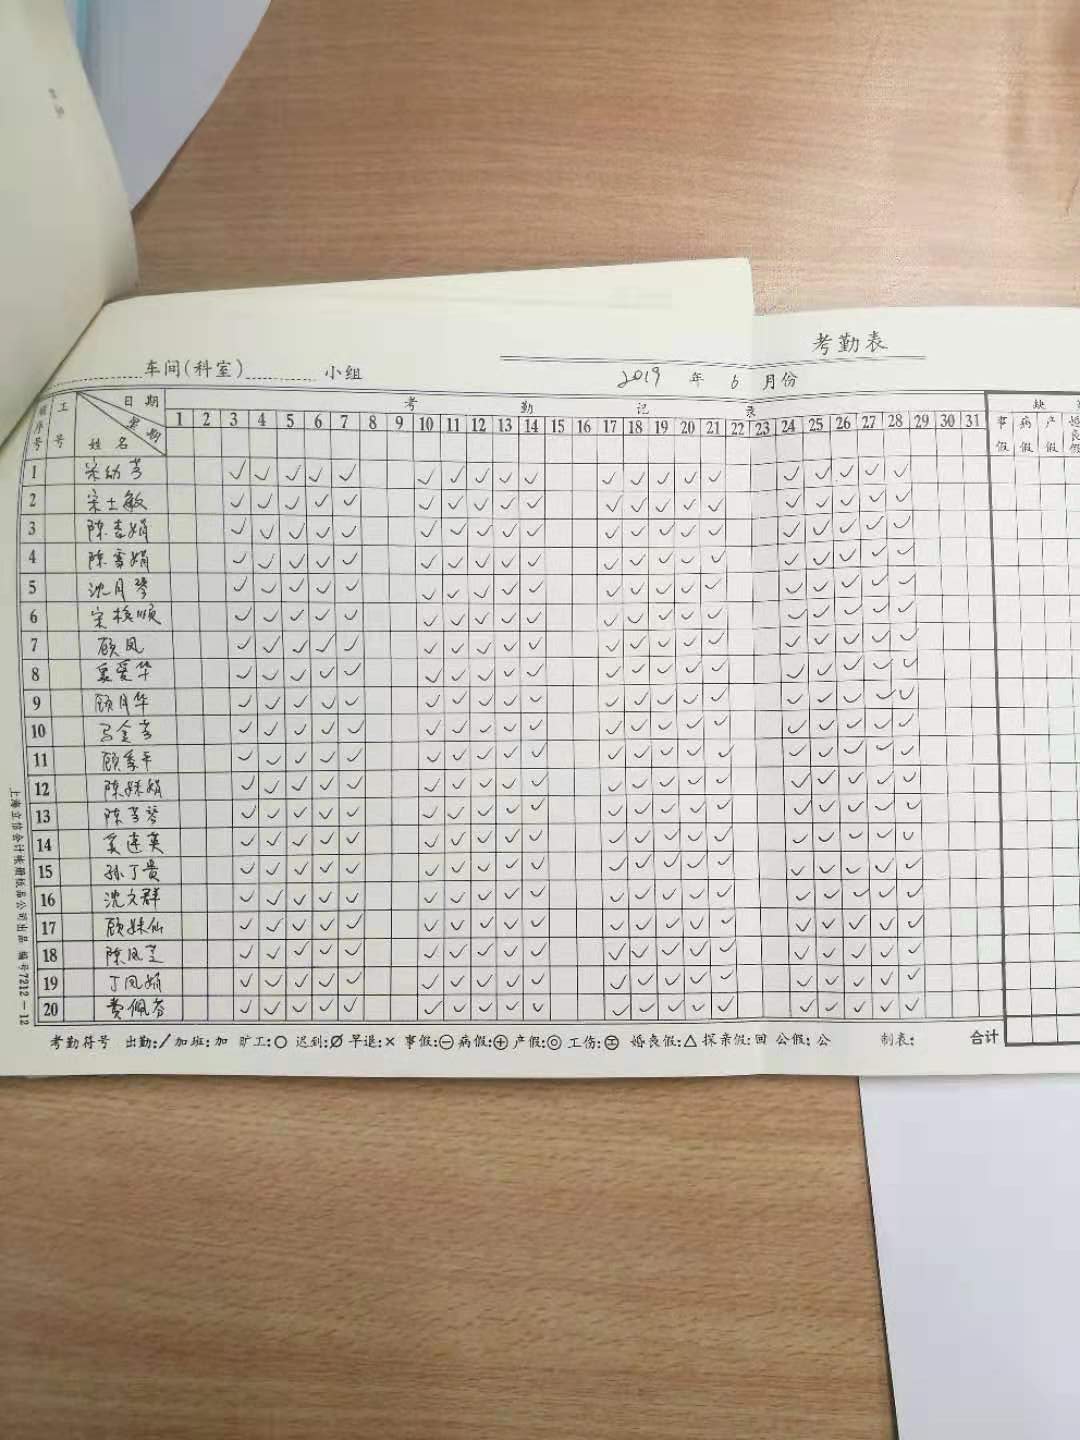 考勤表
车间(科室) 小组 2019 年 6 月份
顺序号 工号 日期 星期 姓名 考勤记录 缺
1 2 3 4 5 6 7 8 9 10 11 12 13 14 15 16 17 18 19 20 21 22 23 24 25 26 27 28 29 30 31 事假 病假 产假 婚丧假
1 宋幼芳 ✓ ✓ ✓ ✓ ✓ ✓ ✓ ✓ ✓ ✓ ✓ ✓ ✓ ✓ ✓ ✓ ✓ ✓ ✓ ✓
2 宋士敏 ✓ ✓ ✓ ✓ ✓ ✓ ✓ ✓ ✓ ✓ ✓ ✓ ✓ ✓ ✓ ✓ ✓ ✓ ✓ ✓
3 陈杏娟 ✓ ✓ ✓ ✓ ✓ ✓ ✓ ✓ ✓ ✓ ✓ ✓ ✓ ✓ ✓ ✓ ✓ ✓ ✓ ✓
4 陈娟 ✓ ✓ ✓ ✓ ✓ ✓ ✓ ✓ ✓ ✓ ✓ ✓ ✓ ✓ ✓ ✓ ✓ ✓ ✓ ✓
5 沈月琴 ✓ ✓ ✓ ✓ ✓ ✓ ✓ ✓ ✓ ✓ ✓ ✓ ✓ ✓ ✓ ✓ ✓ ✓ ✓ ✓
6 宋桂顺 ✓ ✓ ✓ ✓ ✓ ✓ ✓ ✓ ✓ ✓ ✓ ✓ ✓ ✓ ✓ ✓ ✓ ✓ ✓ ✓
7 顾凤 ✓ ✓ ✓ ✓ ✓ ✓ ✓ ✓ ✓ ✓ ✓ ✓ ✓ ✓ ✓ ✓ ✓ ✓ ✓ ✓
8 爱华 ✓ ✓ ✓ ✓ ✓ ✓ ✓ ✓ ✓ ✓ ✓ ✓ ✓ ✓ ✓ ✓ ✓ ✓ ✓ ✓
9 顾月华 ✓ ✓ ✓ ✓ ✓ ✓ ✓ ✓ ✓ ✓ ✓ ✓ ✓ ✓ ✓ ✓ ✓ ✓ ✓ ✓
10 马金芳 ✓ ✓ ✓ ✓ ✓ ✓ ✓ ✓ ✓ ✓ ✓ ✓ ✓ ✓ ✓ ✓ ✓ ✓ ✓ ✓
11 顾秀平 ✓ ✓ ✓ ✓ ✓ ✓ ✓ ✓ ✓ ✓ ✓ ✓ ✓ ✓ ✓ ✓ ✓ ✓ ✓ ✓
12 陈妹娟 ✓ ✓ ✓ ✓ ✓ ✓ ✓ ✓ ✓ ✓ ✓ ✓ ✓ ✓ ✓ ✓ ✓ ✓ ✓ ✓
13 陈芳琴 ✓ ✓ ✓ ✓ ✓ ✓ ✓ ✓ ✓ ✓ ✓ ✓ ✓ ✓ ✓ ✓ ✓ ✓ ✓ ✓
14 连英 ✓ ✓ ✓ ✓ ✓ ✓ ✓ ✓ ✓ ✓ ✓ ✓ ✓ ✓ ✓ ✓ ✓ ✓ ✓ ✓
15 孙丁贵 ✓ ✓ ✓ ✓ ✓ ✓ ✓ ✓ ✓ ✓ ✓ ✓ ✓ ✓ ✓ ✓ ✓ ✓ ✓ ✓
16 沈文群 ✓ ✓ ✓ ✓ ✓ ✓ ✓ ✓ ✓ ✓ ✓ ✓ ✓ ✓ ✓ ✓ ✓ ✓ ✓ ✓
17 顾妹仙 ✓ ✓ ✓ ✓ ✓ ✓ ✓ ✓ ✓ ✓ ✓ ✓ ✓ ✓ ✓ ✓ ✓ ✓ ✓ ✓
18 陈凤芝 ✓ ✓ ✓ ✓ ✓ ✓ ✓ ✓ ✓ ✓ ✓ ✓ ✓ ✓ ✓ ✓ ✓ ✓ ✓ ✓
19 丁凤娟 ✓ ✓ ✓ ✓ ✓ ✓ ✓ ✓ ✓ ✓ ✓ ✓ ✓ ✓ ✓ ✓ ✓ ✓ ✓ ✓
20 费佩芬 ✓ ✓ ✓ ✓ ✓ ✓ ✓ ✓ ✓ ✓ ✓ ✓ ✓ ✓ ✓ ✓ ✓ ✓ ✓ ✓
考勤符号 出勤:/ 加班:加 旷工:○ 迟到:Ø 早退:× 事假:㊀ 病假:⊕ 产假:◎ 工伤:㊣ 婚丧假:△ 探亲假:回 公假:公 制表: 合计
上海立信会计帐册纸品公司出品 编号7212-12